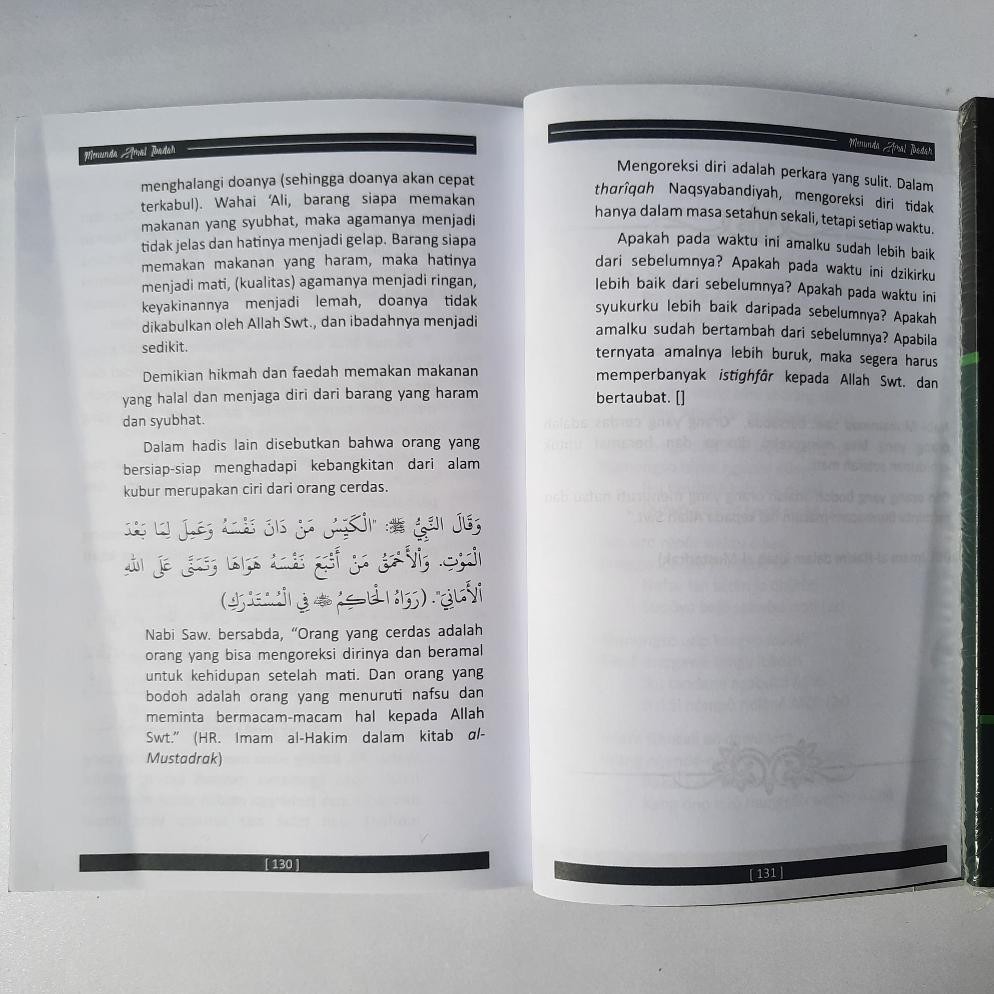 Menunda Amal Ibadah
menghalangi doanya (sehingga doanya akan cepat
terkabul). Wahai ‘Ali, barang siapa memakan
makanan yang syubhat, maka agamanya menjadi
tidak jelas dan hatinya menjadi gelap. Barang siapa
memakan makanan yang haram, maka hatinya
menjadi mati, (kualitas) agamanya menjadi ringan,
keyakinannya menjadi lemah, doanya tidak
dikabulkan oleh Allah Swt., dan ibadahnya menjadi
sedikit.
Demikian hikmah dan faedah memakan makanan
yang halal dan menjaga diri dari barang yang haram
dan syubhat.
Dalam hadis lain disebutkan bahwa orang yang
bersiap-siap menghadapi kebangkitan dari alam
kubur merupakan ciri dari orang cerdas.
وَقَالَ النَّبِيُّ ﷺ: "الْكَيِّسُ مَنْ دَانَ نَفْسَهُ وَعَمِلَ لِمَا بَعْدَ
الْمَوْتِ. وَالْأَحْمَقُ مَنْ أَتْبَعَ نَفْسَهُ هَوَاهَا وَتَمَنَّى عَلَى اللهِ
الْأَمَانِيَ". (رَوَاهُ الْحَاكِمُ فِي الْمُسْتَدْرَكِ)
Nabi Saw. bersabda, “Orang yang cerdas adalah
orang yang bisa mengoreksi dirinya dan beramal
untuk kehidupan setelah mati. Dan orang yang
bodoh adalah orang yang menuruti nafsu dan
meminta bermacam-macam hal kepada Allah
Swt.” (HR. Imam al-Hakim dalam kitab al-
Mustadrak)
[ 130 ]
Menunda Amal Ibadah
Mengoreksi diri adalah perkara yang sulit. Dalam
tharîqah Naqsyabandiyah, mengoreksi diri tidak
hanya dalam masa setahun sekali, tetapi setiap waktu.
Apakah pada waktu ini amalku sudah lebih baik
dari sebelumnya? Apakah pada waktu ini dzikirku
lebih baik dari sebelumnya? Apakah pada waktu ini
syukurku lebih baik daripada sebelumnya? Apakah
amalku sudah bertambah dari sebelumnya? Apabila
ternyata amalnya lebih buruk, maka segera harus
memperbanyak istighfâr kepada Allah Swt. dan
bertaubat. []
[ 131 ]